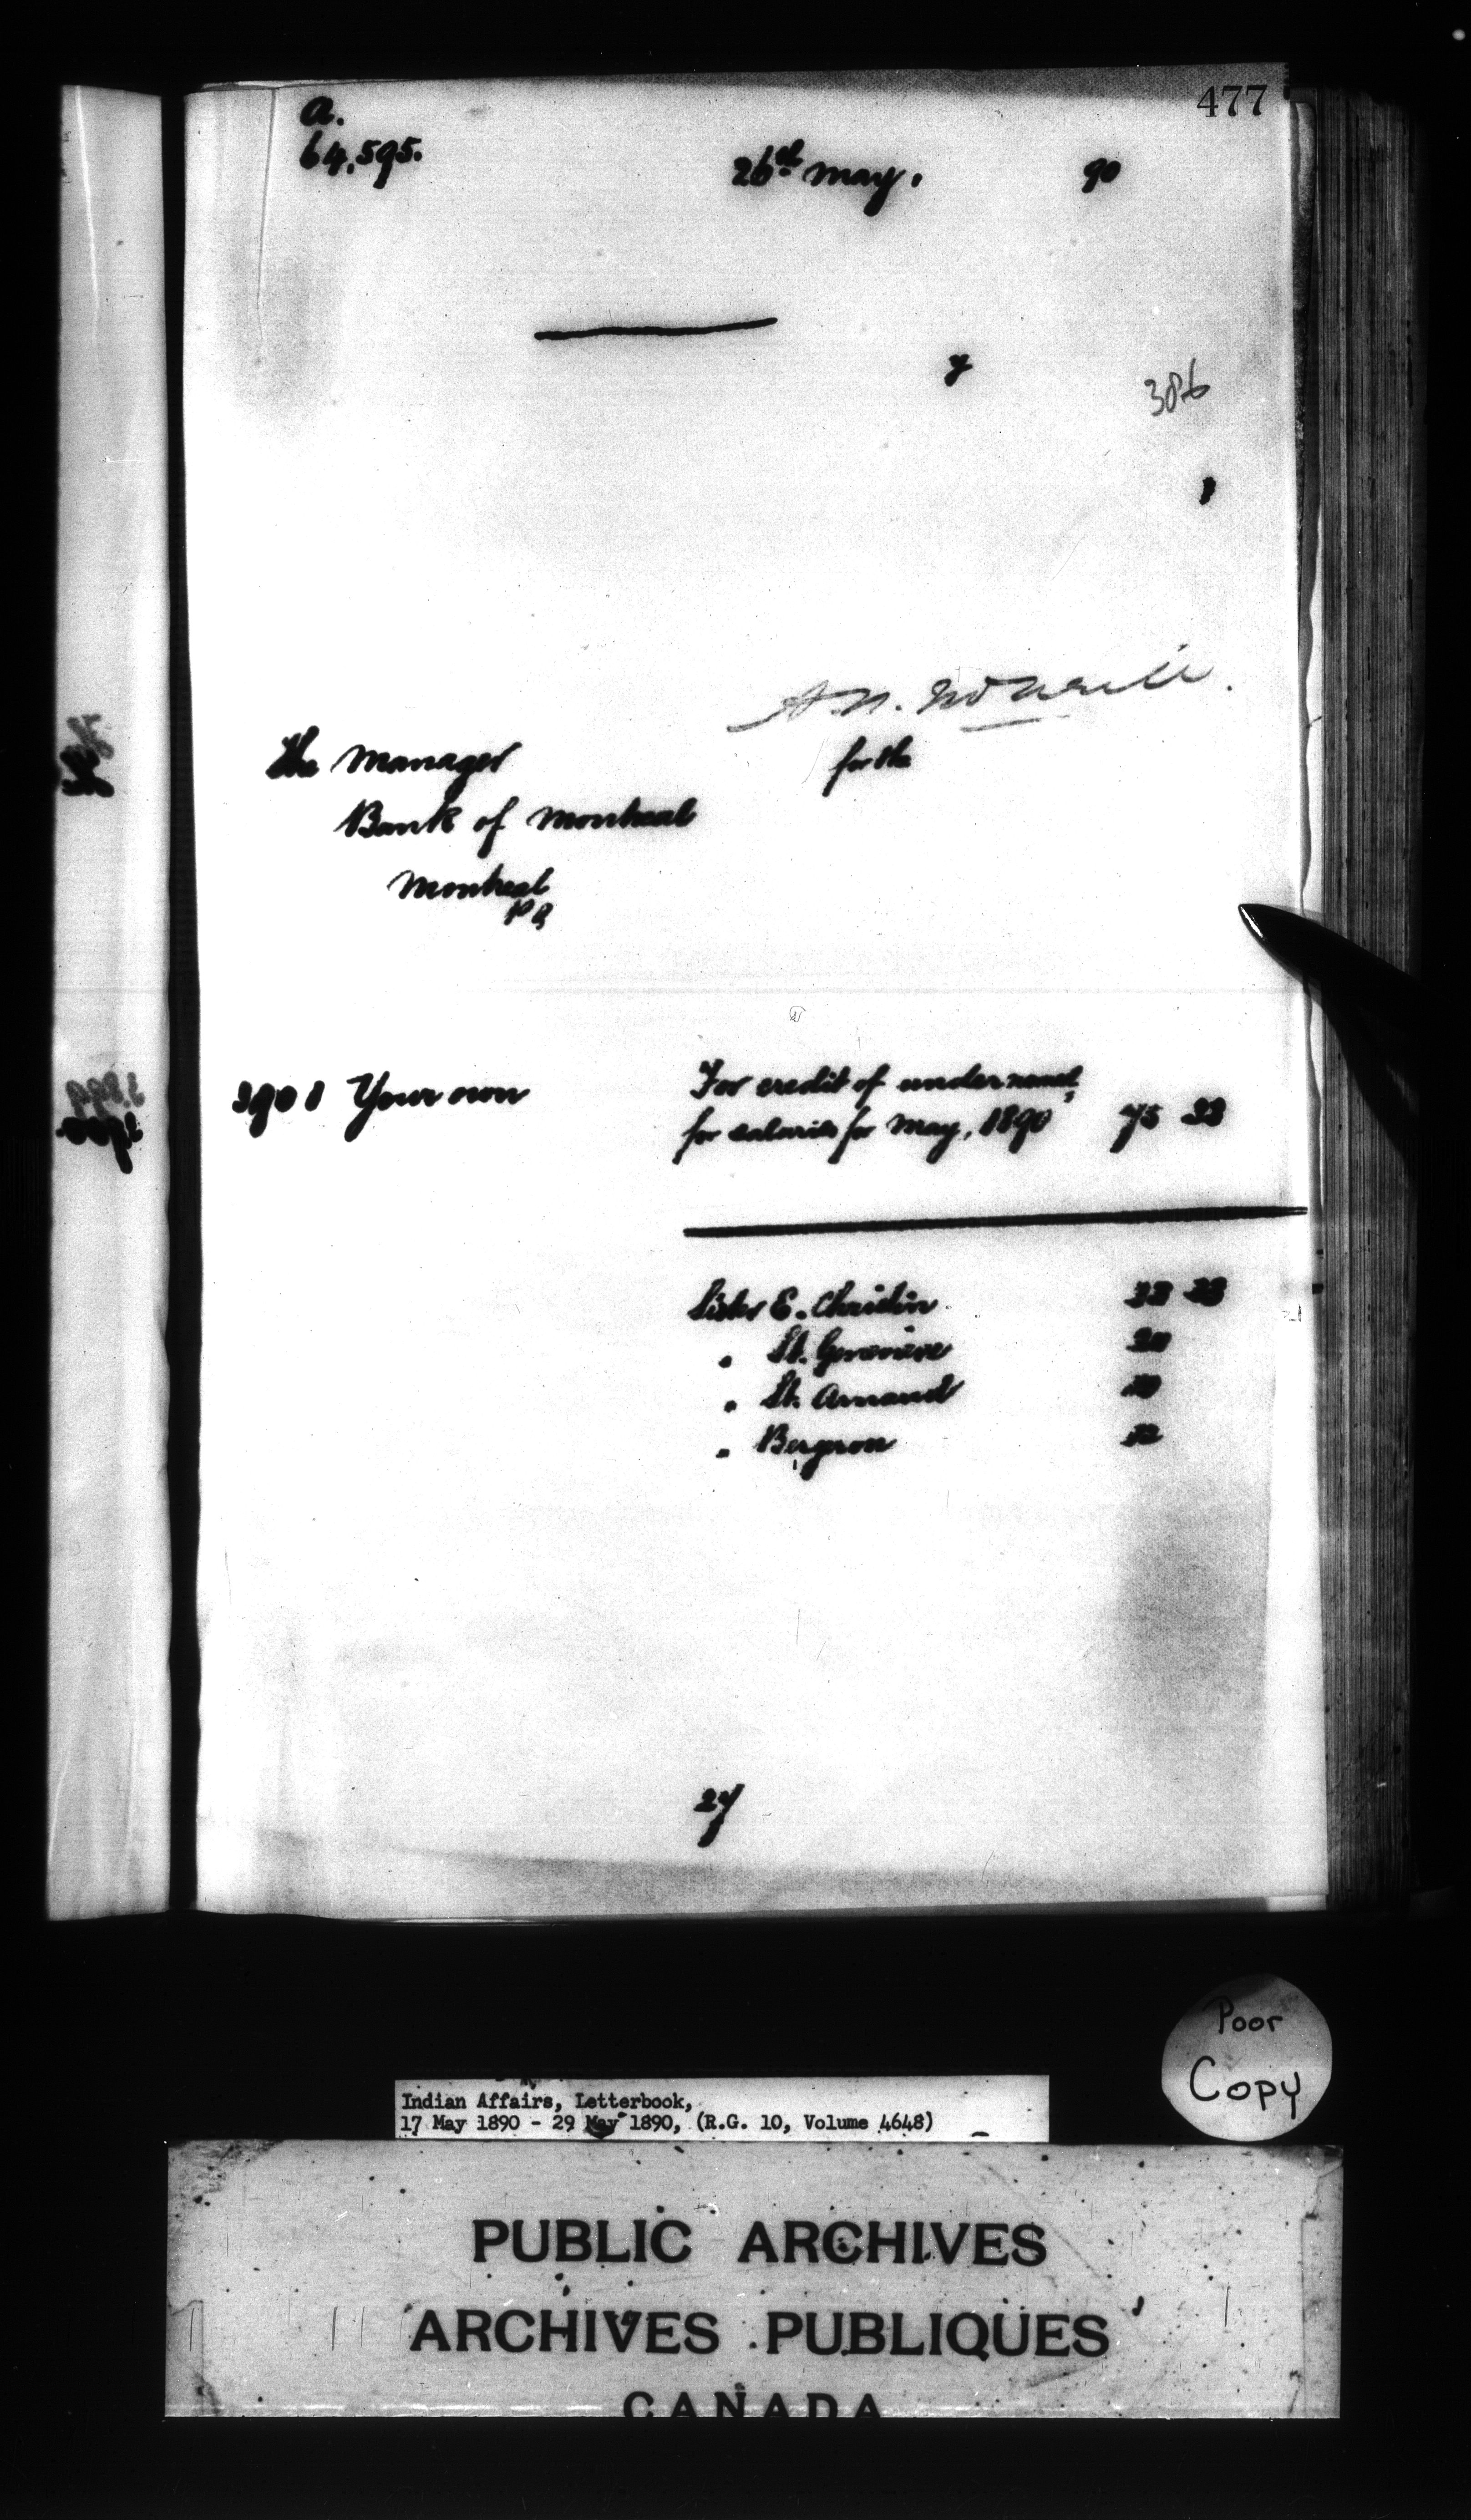 477
a.
64,595.
26th May, 90
y
386
for the
The Manager
Bank of Montreal
Montreal
P Q
3901 Your own
For credit of undernamed,
for salaries for May, 1890 75 33
Sister E. Christin 33 33
" St. Genevieve 20
" St. Amand 10
" Bergeron 12
27
Poor
Copy
Indian Affairs, Letterbook,
17 May 1890 - 29 May 1890, (R.G. 10, Volume 4648)
PUBLIC ARCHIVES
ARCHIVES PUBLIQUES
CANADA